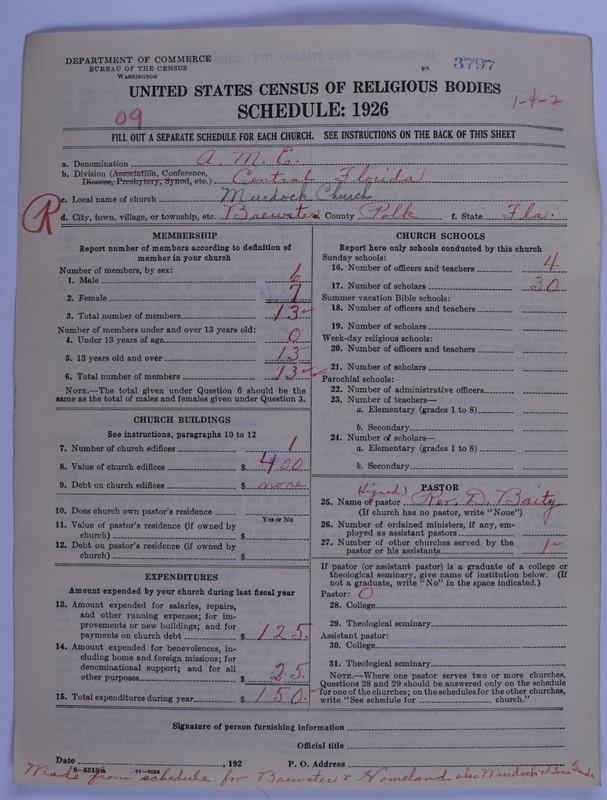 DEPARTMENT OF COMMERCE
BUREAU OF THE CENSUS
WASHINGTON
3797
UNITED STATES CENSUS OF RELIGIOUS BODIES
SCHEDULE: 1926
1-4-2
09
FILL OUT A SEPARATE SCHEDULE FOR EACH CHURCH. SEE INSTRUCTIONS ON THE BACK OF THIS SHEET
a. Denomination A. M. E.
b. Division (Association, Conference, Diocese, Presbytery, Synod, etc.) Central Florida
c. Local name of church Murdock Church
R
d. City, town, village, or township, etc. Brewster County Polk f. State Fla.
MEMBERSHIP
Report number of members according to definition of
member in your church
Number of members, by sex:
1. Male 6
2. Female 7
3. Total number of members 13
Number of members under and over 13 years old:
4. Under 13 years of age 0
5. 13 years old and over 13
6. Total number of members 13
NOTE.—The total given under Question 6 should be the
same as the total of males and females given under Question 3.
CHURCH BUILDINGS
See instructions, paragraphs 10 to 12
7. Number of church edifices 1
8. Value of church edifices $ 400
9. Debt on church edifices $ none
10. Does church own pastor's residence
Yes or No
11. Value of pastor's residence (if owned by
church) $
12. Debt on pastor's residence (if owned by
church) $
EXPENDITURES
Amount expended by your church during last fiscal year
13. Amount expended for salaries, repairs,
and other running expenses; for im-
provements or new buildings; and for
payments on church debt $ 125.
14. Amount expended for benevolences, in-
cluding home and foreign missions; for
denominational support; and for all
other purposes $ 25.
15. Total expenditures during year $ 150.
CHURCH SCHOOLS
Report here only schools conducted by this church
Sunday schools:
16. Number of officers and teachers 4
17. Number of scholars 30
Summer vacation Bible schools:
18. Number of officers and teachers
19. Number of scholars
Week-day religious schools:
20. Number of officers and teachers
21. Number of scholars
Parochial schools:
22. Number of administrative officers
23. Number of teachers—
a. Elementary (grades 1 to 8)
b. Secondary
24. Number of scholars—
a. Elementary (grades 1 to 8)
b. Secondary
PASTOR
(Signed)
25. Name of pastor Rev. D. Baity
(If church has no pastor, write "None")
26. Number of ordained ministers, if any, em-
ployed as assistant pastors
27. Number of other churches served by the
pastor or his assistants 1
If pastor (or assistant pastor) is a graduate of a college or
theological seminary, give name of institution below. (If
not a graduate, write "No" in the space indicated.)
Pastor: 0
28. College
29. Theological seminary
Assistant pastor:
30. College
31. Theological seminary
NOTE.—Where one pastor serves two or more churches,
Questions 28 and 29 should be answered only on the schedule
for one of the churches; on the schedules for the other churches,
write "See schedule for church."
Signature of person furnishing information
Official title
Date , 192 P. O. Address
8-5318 11-9084
Made from schedule for Brewster & Homeland also Murdock & Boca Grande